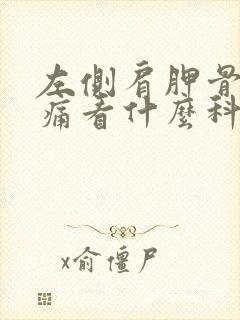 左側肩胛骨
痛看什麼科
x俞僵尸